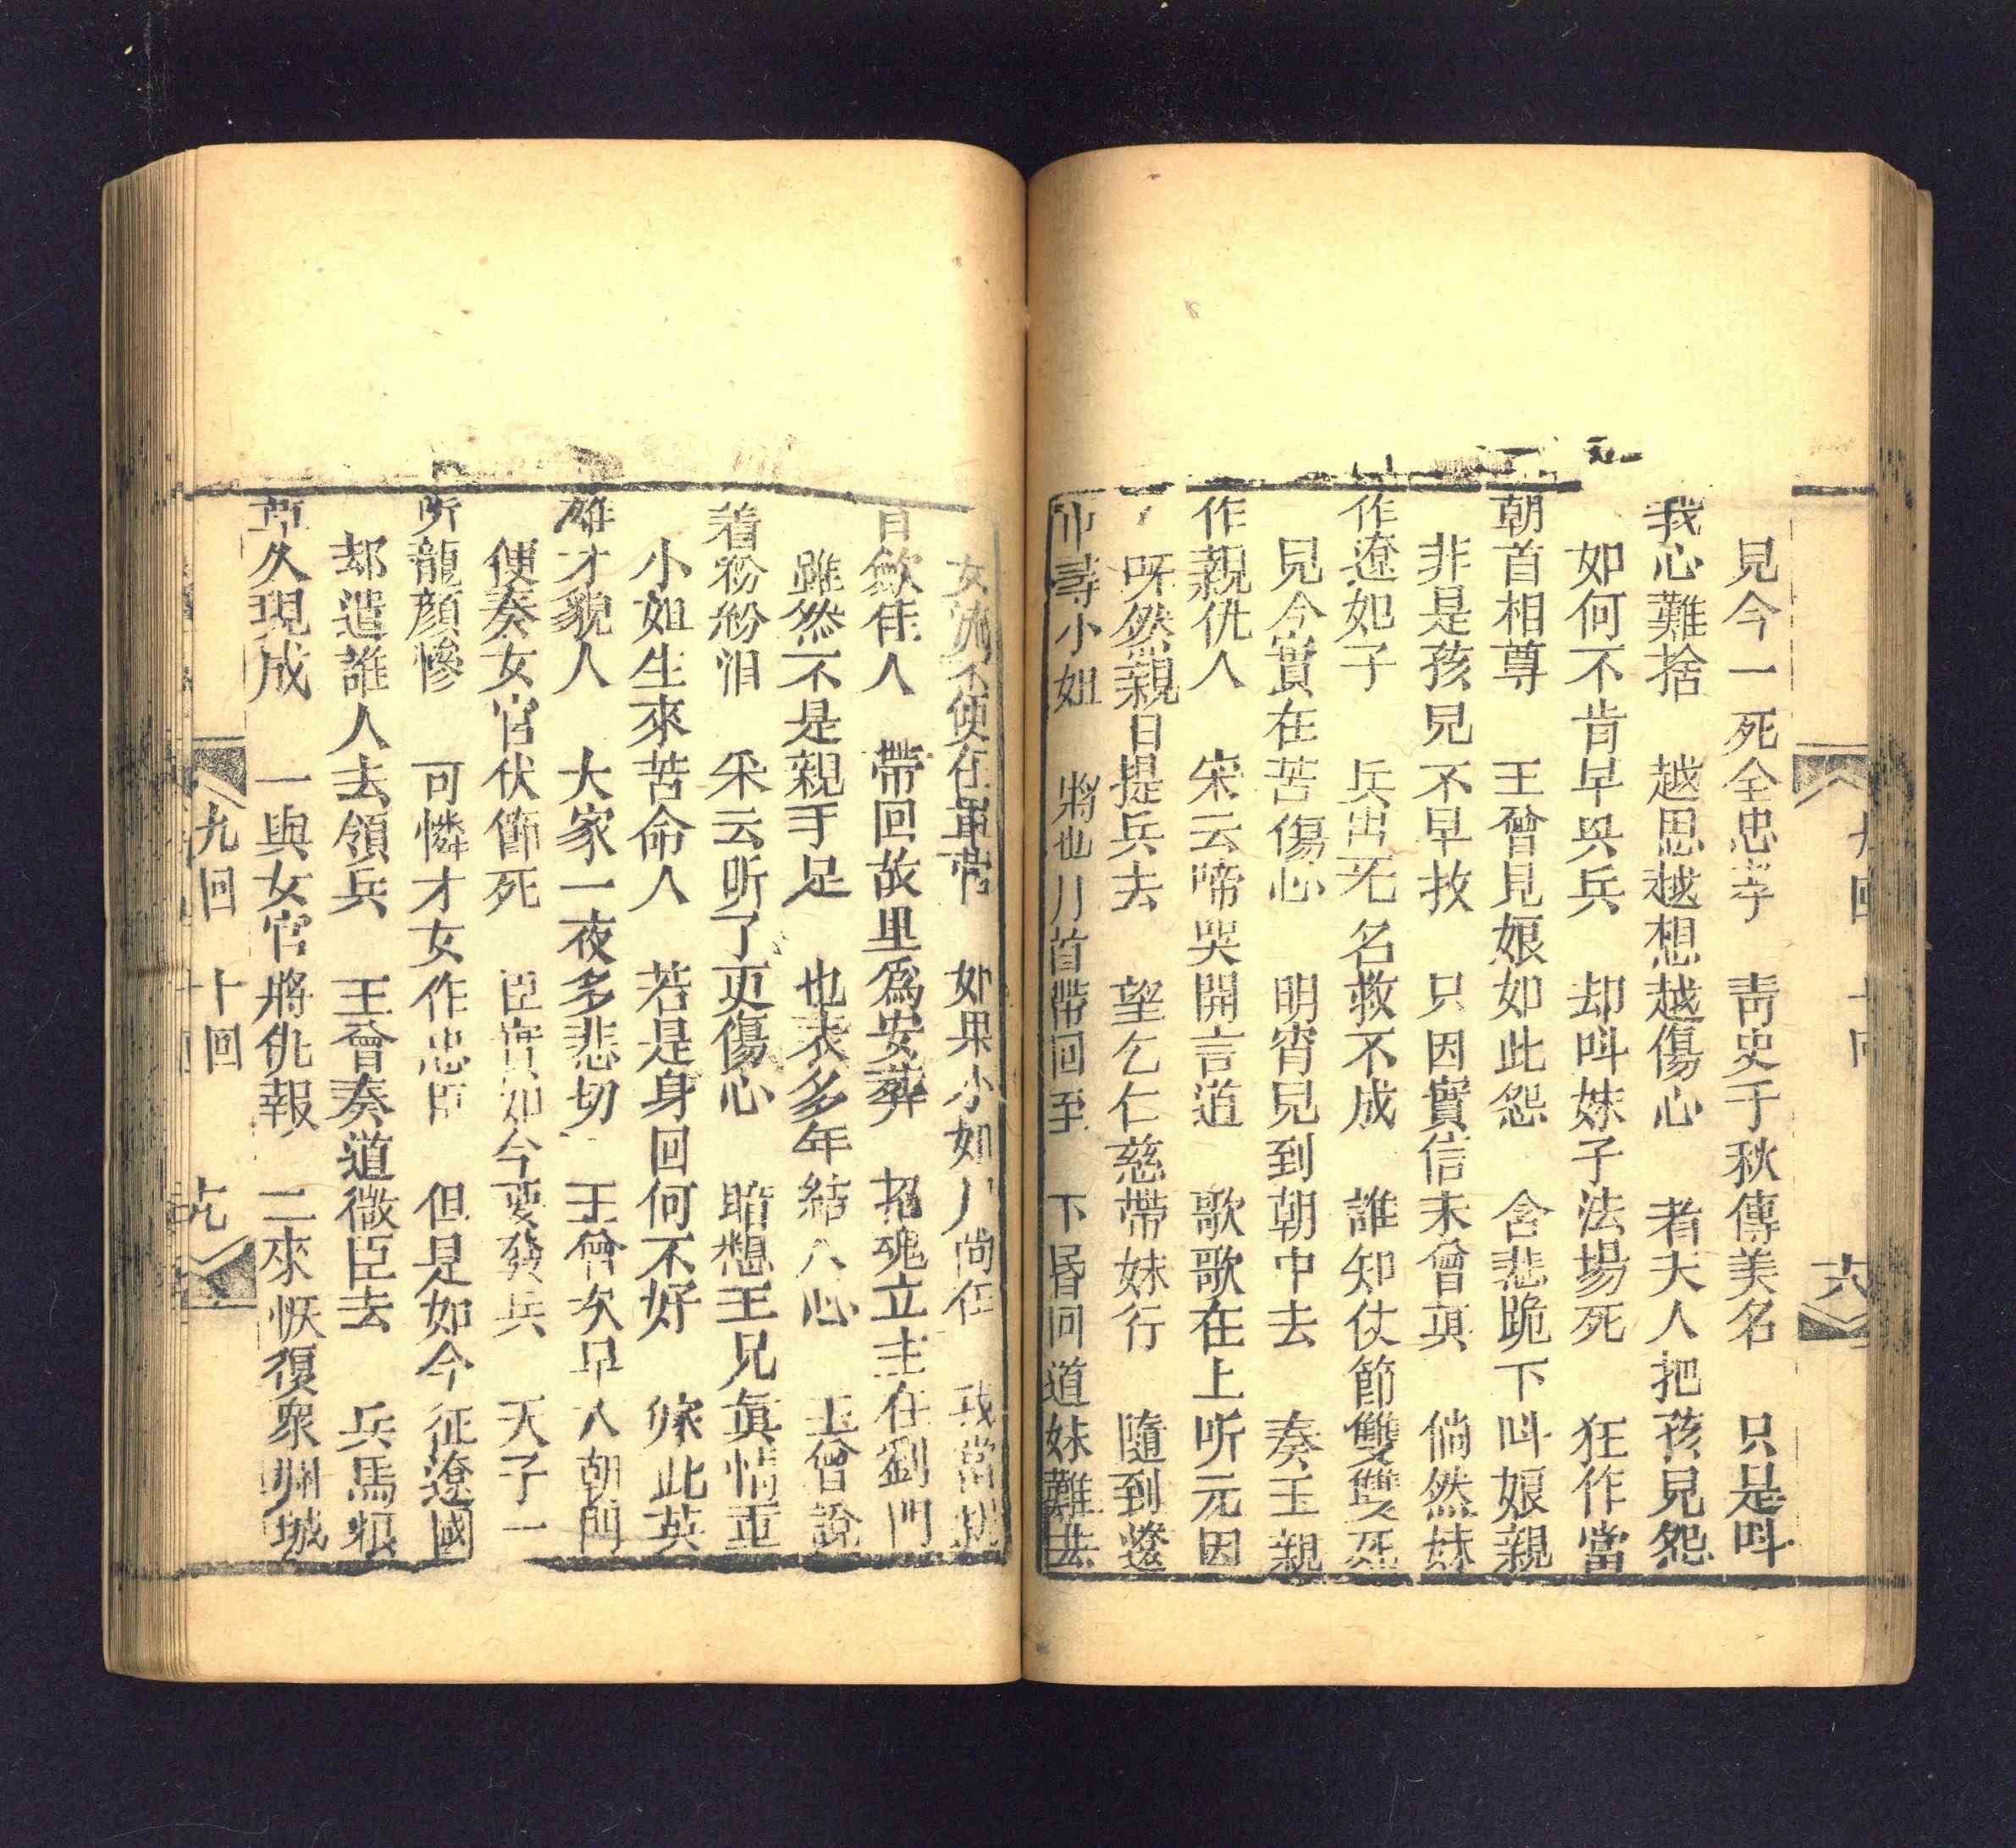 見今一死全忠孝　青史于秋傳美名　只是呌
我心難捨　越思越想越傷心　者夫人把孩見怨
如何不肯早興兵　却呌妹子法場死　狂作當
朝首相尊　王曾見娘如此怨　含悲跪下呌娘親
非是孩兒不早救　只因實信未曾真　倘然妹
作遼如子　兵出無名救不成　誰知仗節雙雙死
見今實在苦傷心　明宵見到朝中去　奏主親
作親仇人　宋云啼哭開言道　歌歌在上听元因
呀然親日提兵去　望乞仁慈帶妹行　隨到遼
尋小姐　首帶回至　下昏问道妹難去
女流不便在軍营　如果小如尸尚在　我當
歛佳人　帶回故里為安葬　招魂立主在劉門
雖然不是親手足　也表多年結人心　王曾說
着粉紛泪　采云听了更傷心　暗想王兄眞情重
小姐生來苦命人　若是身回何不好　像此英
雄才貌人　大家一夜多悲切　王曾次早入朝門
便奏女官伏俤死　臣實如今要發兵　天子一
听龍顔慘　可憐才女作忠臣　但是如今征遼國
却遣誰人去領兵　王曾奏道微臣去　兵馬粮
久現成　一與女官將仇報　二來恢復衆州城
九回　十回
六